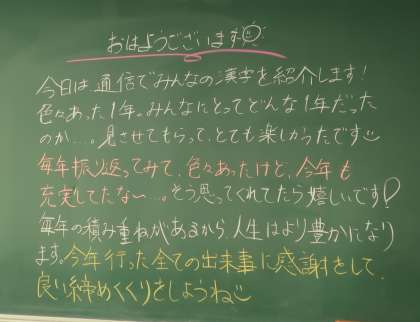 おはようございます
今日は通信でみんなの漢字を紹介します!
色々あった1年。みんなにとってどんな1年だった
のか…。見させてもらって、とても楽しかったです
毎年振り返ってみて、色々あったけど、今年も
充実してたな〜…。そう思ってくれてたら嬉しいです!
毎年の積み重ねがあるから、人生はより豊かになり
ます。今年行った全ての出来事に感謝をして、
良い締めくくりをしようね